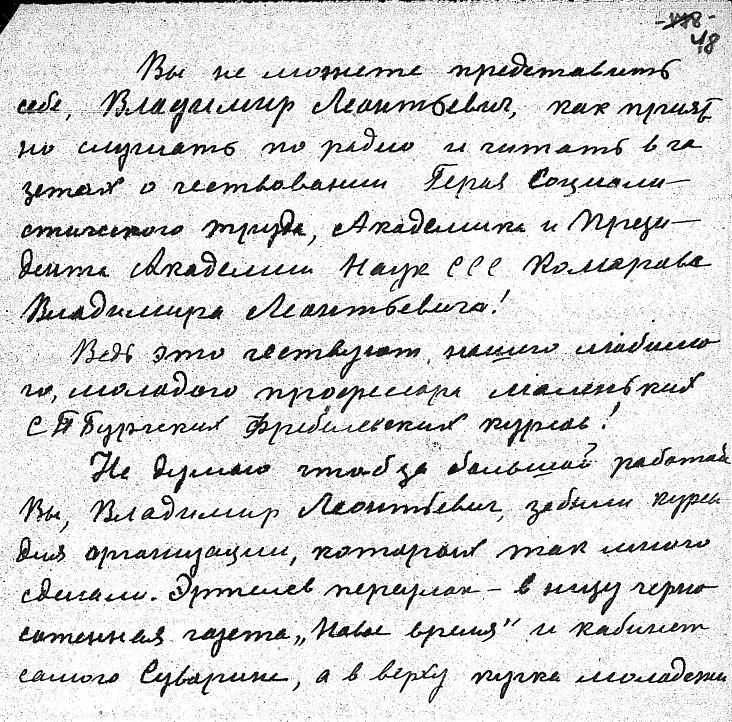 48
Вы не можете представить
себе, Владимир Леонтьевич, как прият
но слушать по радио и читать в га
зетах о чествовании Героя Социали-
стического труда, Академика и Прези-
дента Академии Наук ССС Комарова
Владимира Леонтьевича!
Ведь это чествуют нашего любимо
го, молодого профессора маленьких
СПБургских Фребелевских курсов!
Не думаю чтоб за большой работой
Вы, Владимир Леонтьевич, забыли курсы
для организации, которых так много
сделали. Эртелев переулок - в низу черно
сотенная газета „Новое время" и кабинет
самого Суворина, а в верху кучка молодежи